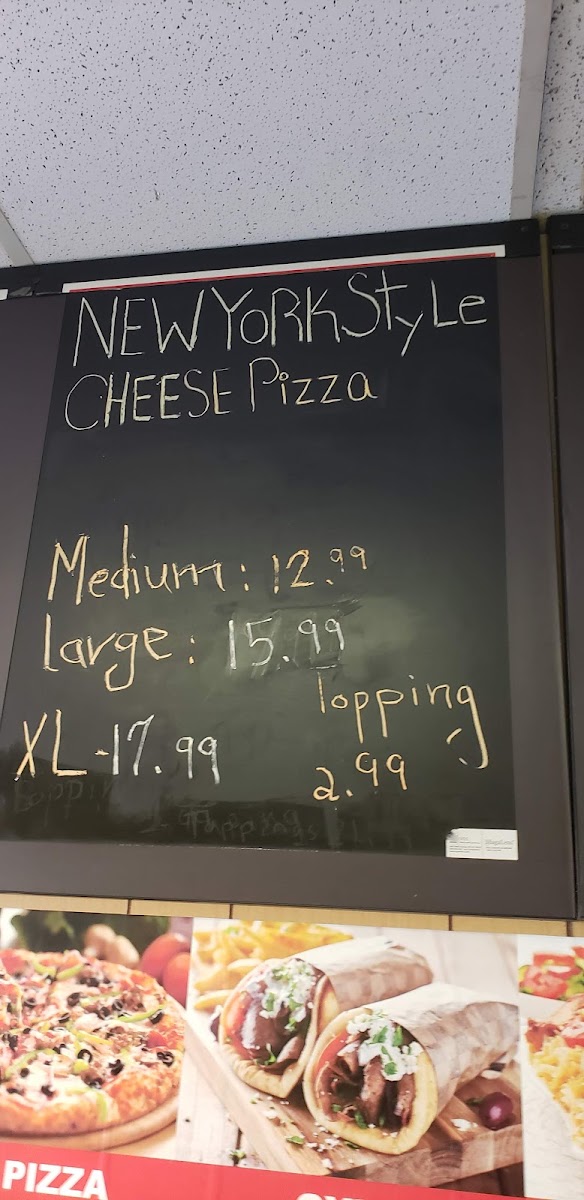 NEW YORK StyLe
CHEESE Pizza
Medium: 12.99
large: 15.99
Topping
XL - 17.99
2.99
PIZZA